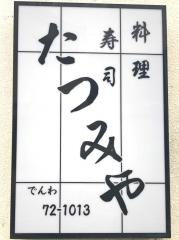 料理
寿司
たつみや
でんわ
72-1013